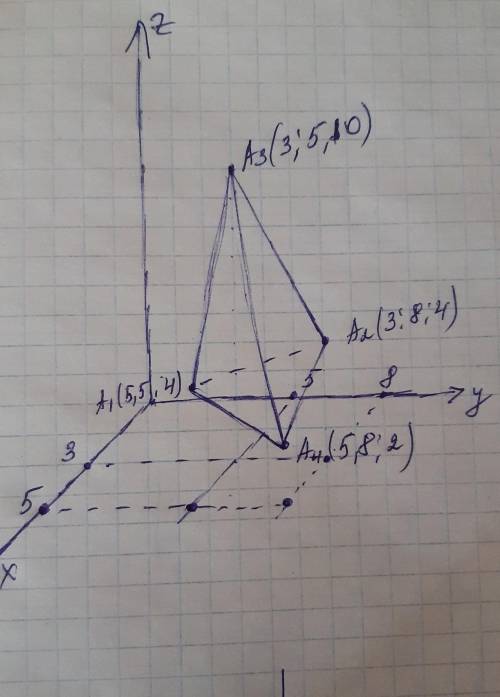 z
A3(3; 5, 10)
A2(3; 8; 4)
A1(5, 5; 4)
5
8
y
3
A4(5, 8; 2)
5
x